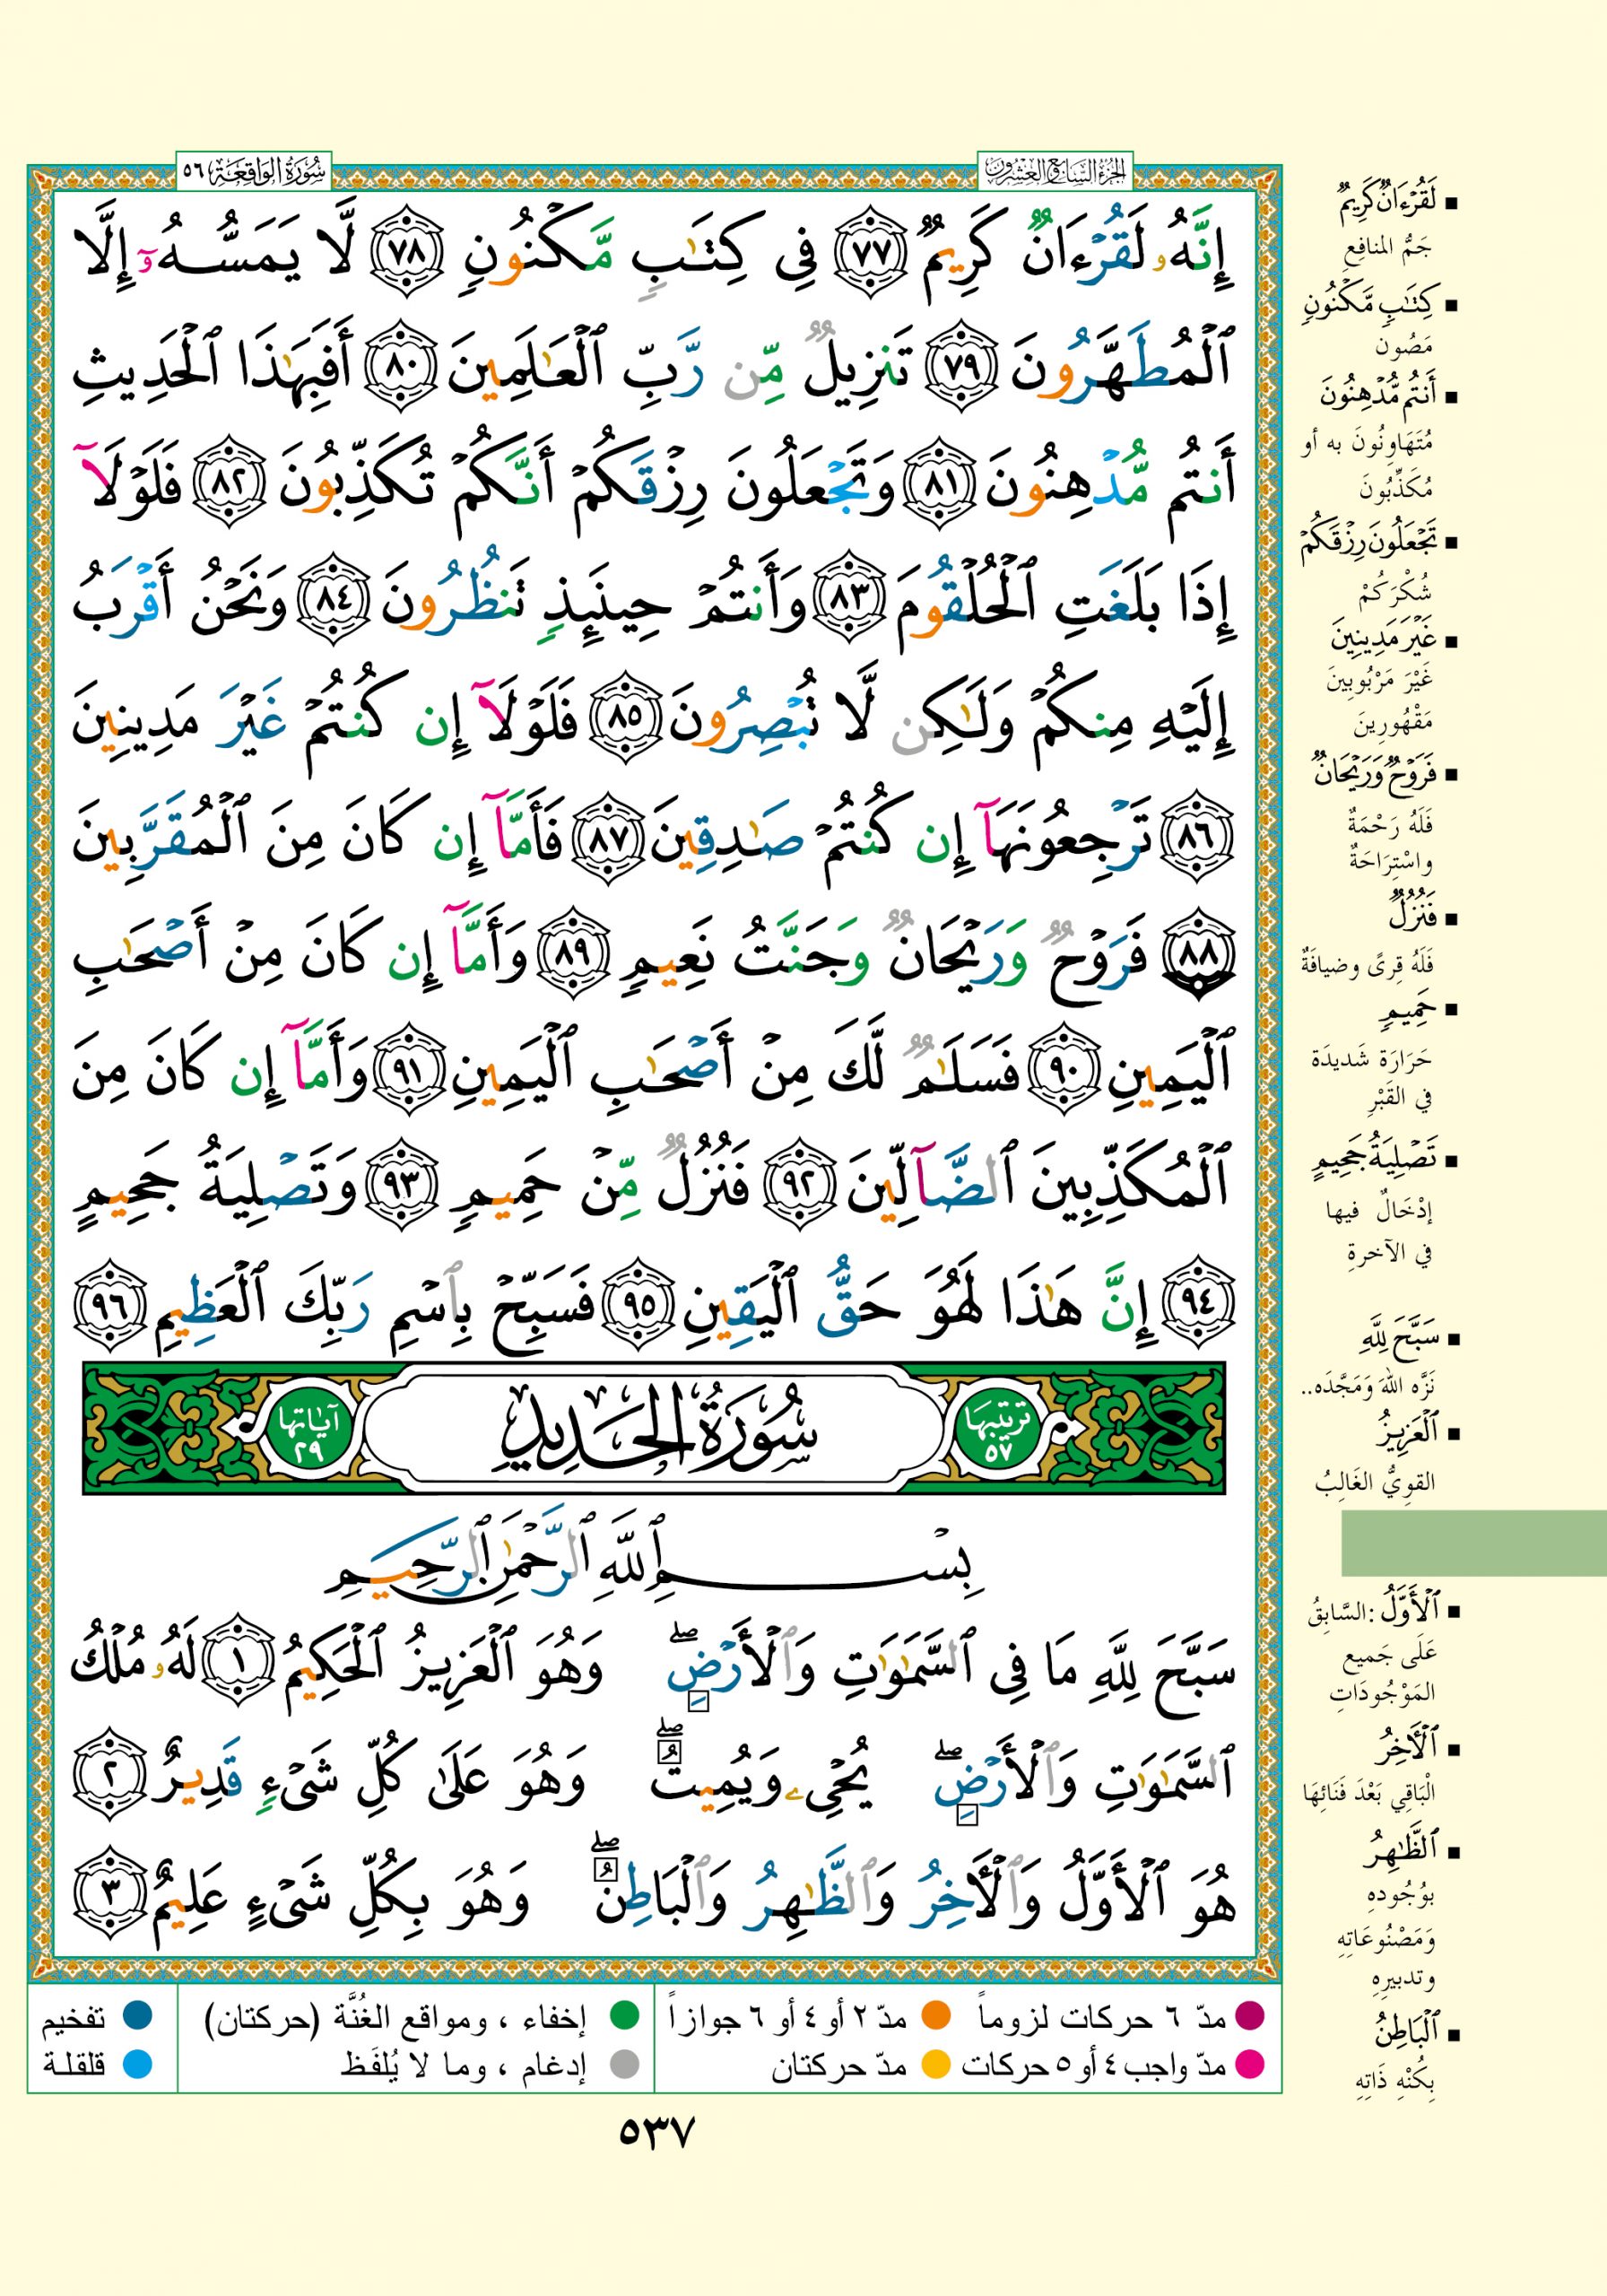 الجزء السابع العشرون
سورة الواقعة ٥٦
إِنَّهُۥ لَقُرْءَانٌ كَرِيمٌ ٧٧ فِى كِتَٰبٍ مَّكْنُونٍ ٧٨ لَّا يَمَسُّهُۥٓ إِلَّا
ٱلْمُطَهَّرُونَ ٧٩ تَنزِيلٌ مِّن رَّبِّ ٱلْعَٰلَمِينَ ٨٠ أَفَبِهَٰذَا ٱلْحَدِيثِ
أَنتُم مُّدْهِنُونَ ٨١ وَتَجْعَلُونَ رِزْقَكُمْ أَنَّكُمْ تُكَذِّبُونَ ٨٢ فَلَوْلَآ
إِذَا بَلَغَتِ ٱلْحُلْقُومَ ٨٣ وَأَنتُمْ حِينَئِذٍ تَنظُرُونَ ٨٤ وَنَحْنُ أَقْرَبُ
إِلَيْهِ مِنكُمْ وَلَٰكِن لَّا تُبْصِرُونَ ٨٥ فَلَوْلَآ إِن كُنتُمْ غَيْرَ مَدِينِينَ
٨٦ تَرْجِعُونَهَآ إِن كُنتُمْ صَٰدِقِينَ ٨٧ فَأَمَّآ إِن كَانَ مِنَ ٱلْمُقَرَّبِينَ
٨٨ فَرَوْحٌ وَرَيْحَانٌ وَجَنَّتُ نَعِيمٍ ٨٩ وَأَمَّآ إِن كَانَ مِنْ أَصْحَٰبِ
ٱلْيَمِينِ ٩٠ فَسَلَٰمٌ لَّكَ مِنْ أَصْحَٰبِ ٱلْيَمِينِ ٩١ وَأَمَّآ إِن كَانَ مِنَ
ٱلْمُكَذِّبِينَ ٱلضَّآلِّينَ ٩٢ فَنُزُلٌ مِّنْ حَمِيمٍ ٩٣ وَتَصْلِيَةُ جَحِيمٍ
٩٤ إِنَّ هَٰذَا لَهُوَ حَقُّ ٱلْيَقِينِ ٩٥ فَسَبِّحْ بِٱسْمِ رَبِّكَ ٱلْعَظِيمِ ٩٦
ترتيبها ٥٧ سُورَةُ الحَدِيدِ آياتها ٢٩
بِسْمِ ٱللَّهِ ٱلرَّحْمَٰنِ ٱلرَّحِيمِ
سَبَّحَ لِلَّهِ مَا فِى ٱلسَّمَٰوَٰتِ وَٱلْأَرْضِ ۖ وَهُوَ ٱلْعَزِيزُ ٱلْحَكِيمُ ١ لَهُۥ مُلْكُ
ٱلسَّمَٰوَٰتِ وَٱلْأَرْضِ ۖ يُحْىِۦ وَيُمِيتُ ۖ وَهُوَ عَلَىٰ كُلِّ شَىْءٍ قَدِيرٌ ٢
هُوَ ٱلْأَوَّلُ وَٱلْءَاخِرُ وَٱلظَّٰهِرُ وَٱلْبَاطِنُ ۖ وَهُوَ بِكُلِّ شَىْءٍ عَلِيمٌ ٣
لَقُرْءَانٌ كَرِيمٌ
جَمُّ المنافِعِ
كِتَٰبٍ مَّكْنُونٍ
مَصُون
أَنتُم مُّدْهِنُونَ
مُتَهَاوِنُونَ به أو
مُكَذِّبُونَ
تَجْعَلُونَ رِزْقَكُمْ
شُكْرَكُمْ
غَيْرَ مَدِينِينَ
غَيْرَ مَرْبُوبِينَ
مَقْهُورِينَ
فَرَوْحٌ وَرَيْحَانٌ
فَلَهُ رَحْمَةٌ
واسْتِرَاحَةٌ
فَنُزُلٌ
فَلَهُ قِرىً وضيافَةٌ
حَمِيمٍ
حَرَارَة شَديدَة
في القَبْرِ
تَصْلِيَةُ جَحِيمٍ
إدْخَالٌ فيها
في الآخرةِ
سَبَّحَ لِلَّهِ
نَزَّه اللهَ وَمَجَّدَه..
ٱلْعَزِيزُ
القوِيُّ الغَالِبُ
ٱلْأَوَّلُ : السَّابِقُ
عَلَى جَميع
المَوْجُودَاتِ
ٱلْءَاخِرُ
الْبَاقِي بَعْدَ فَنَائِهَا
ٱلظَّٰهِرُ
بوُجُوده
وَمَصْنُوعَاتِهِ
وتدبيرِهِ
ٱلْبَاطِنُ
بِكُنْهِ ذَاتِهِ
مدّ ٦ حركات لزوماً مدّ ٢ أو ٤ أو ٦ جوازاً إخفاء ، ومواقع الغُنَّة (حركتان) تفخيم
مدّ واجب ٤ أو ٥ حركات مدّ حركتان إدغام ، وما لا يُلفَظ قلقلة
٥٣٧